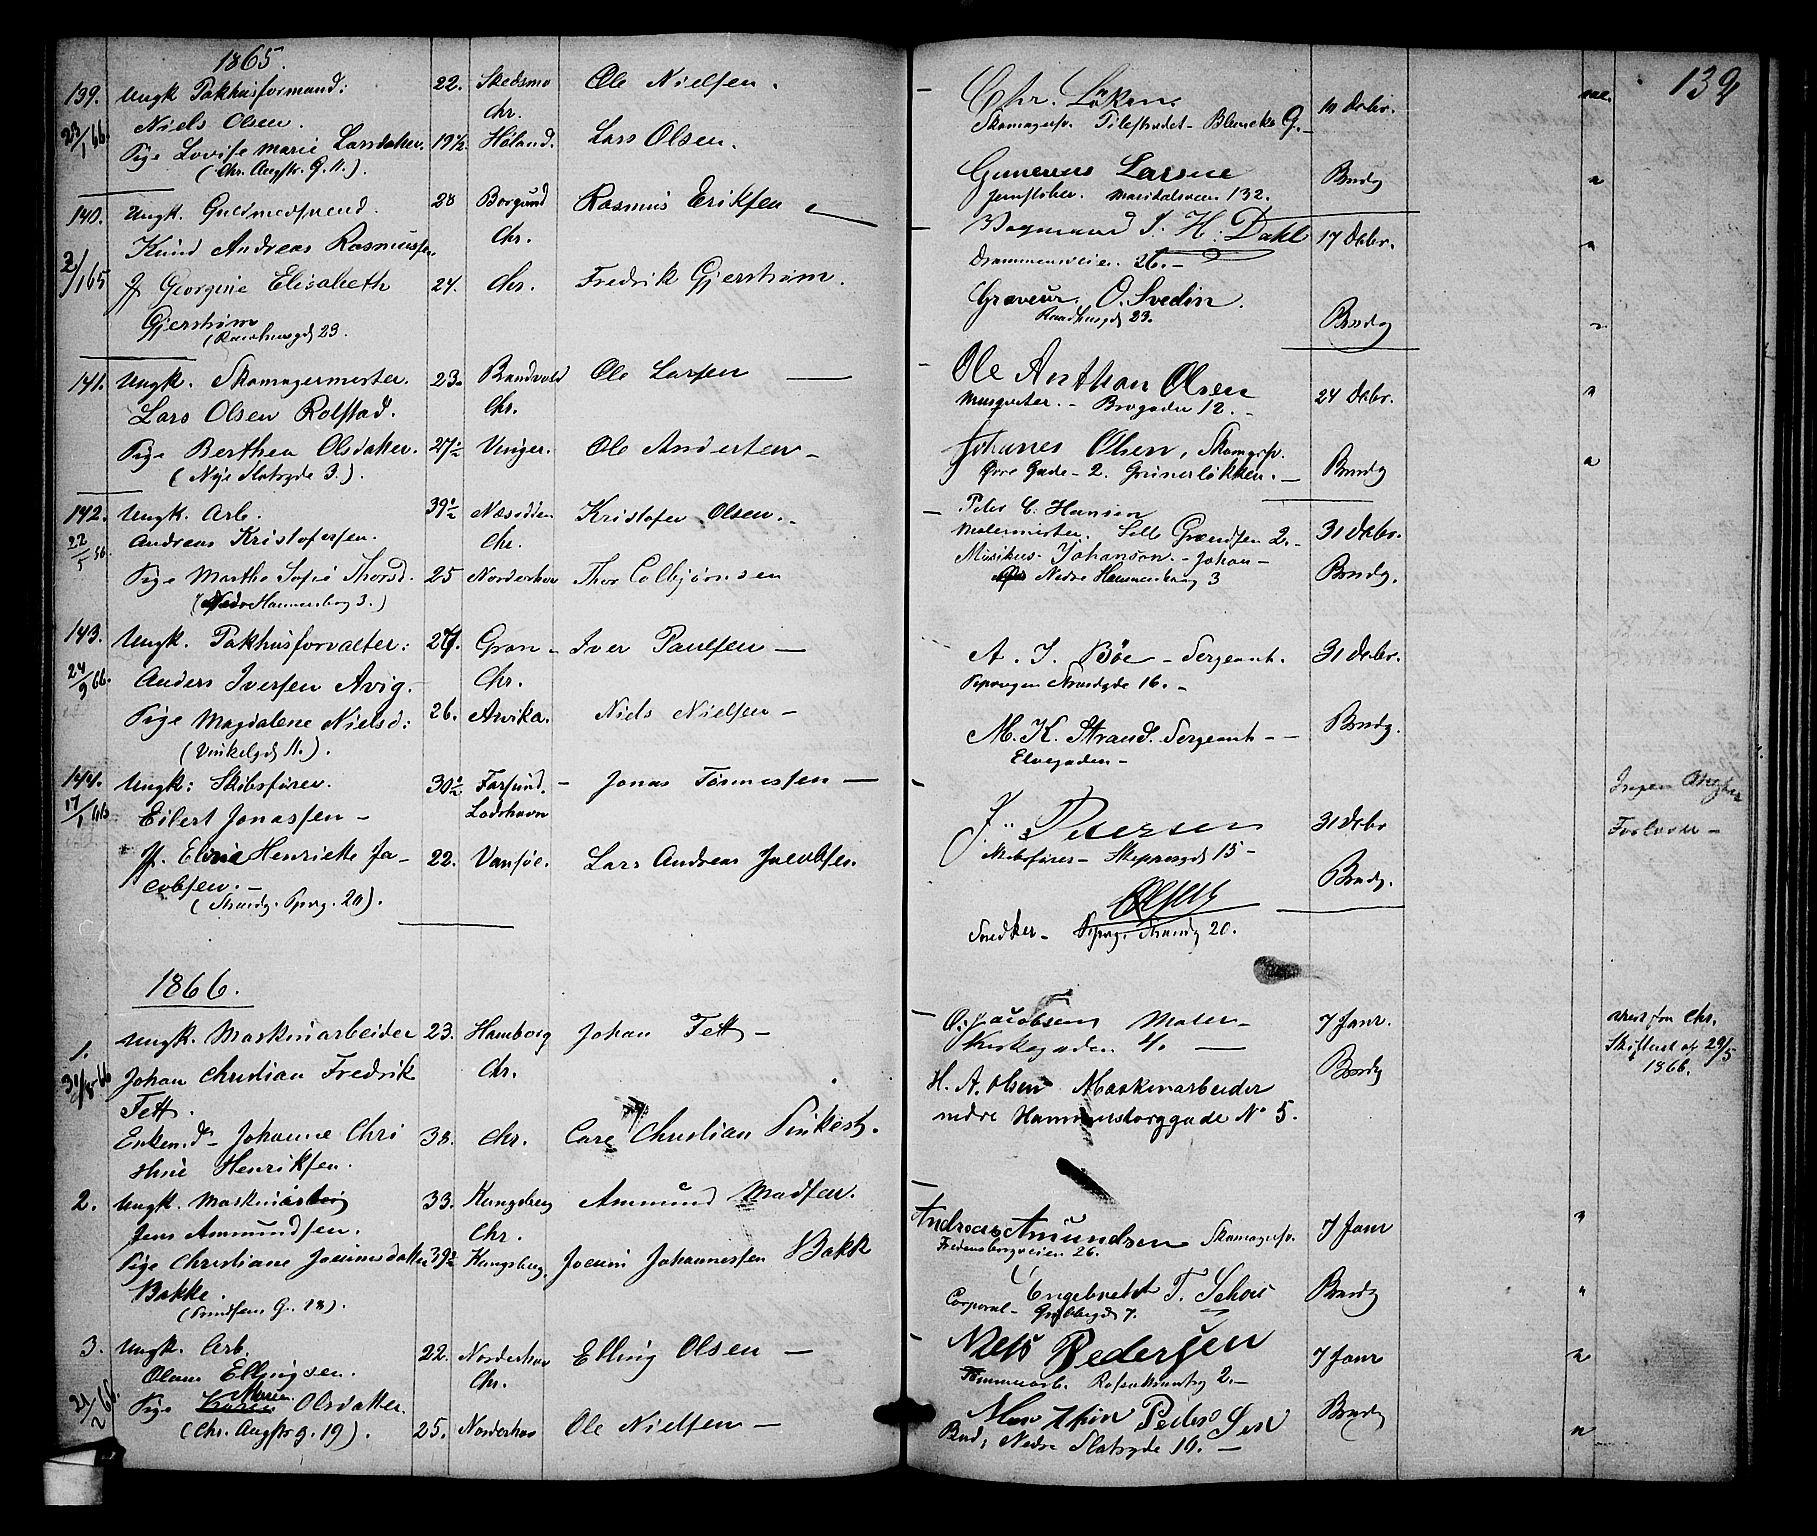 1865.
139. Ungk Pakhusformand: 22. Skedsmo Ole Nielsen.
23/1 66. Niels Olsen. Chr.
Pige Lovise Marie Larsdatter. 19 1/2. Høland. Lars Olsen.
(Chr. Augstr. G. 11.).
140. Ungk. Guldmedsvend. 28 Borgund Rasmus Eriksen
Knud Andreas Rasmussen Chr.
2/1 65 Georgine Elisabeth 24. Chr. Fredrik Gjerstrøm.
Gjerstrøm
(Raadhusgd 23.
141. Ungk. Skomagermester. 23. Brandvold Ole Larsen —
Lars Olsen Rolstad. Chr.
Pige Berthea Olsdatter. 27 1/2 Vinger. Ole Andersen —
(Nye Slotsgde 3.).
142. Ungk. Arb. 39 1/2 Næsodden Kristofer Olsen.
22/5 66. Andreas Kristofersen. Chr.
Pige Marthe Sofie Thorsd. 25 Norderhov Thor Colbjørnsen
(Nedre Hammersborg 3.)
143. Ungk. Pakhusforvalter: 27. Gran — Iver Paulsen —
24/9 66. Anders Iversen Avig. Chr.
Pige Magdalene Nielsd: 26. Arvika. Niels Nielsen —
(Vinkelgd 11.).
144. Ungk: Skibsfører. 30 1/2 Farsund. — Jonas Tønnessen —
17/1 66 Eilert Jonassen —
Henriette Ja- 22. Vansøe. Lars Andreas Jacobsen.
cobsen. —
(Strandg. Piperv. 20).
1866.
1. Ungk. Maskinarbeider 23. Hamborg Johan Fett —
Johan Christian Fredrik Chr.
Fett.
Enkemd — Johanne Chri 38. Chr. Carl Christian
stine Henriksen.
2. Ungk. Maskinarb. 33. Kongsberg Ammund Madsen.
Jens Ammundsen. Chr.
Pige Christiane Jocumsdatter 39 1/2 Kongsberg. Jocum Johannessen Bakk
Bakke.
3. Ungk. Arb. 22. Norderhov Elling Olsen —
Olaus Ellingsen. Chr.
21/2 66. Pige Maren Olsdatter. 25. Norderhov Ole Nielsen —
(Chr. Augstr g. 19).
139
Chr. Løken 10 Debr.
Skomagersv. Pilestrædet — Blenckes G. —
Larsen Brudg
Maridalsveien 132.
Vognmand I. H. Dahl 17 Debr.
Drammensveien. 26. —
Graveur. O. Svedin.
Raadhusgd 23. Brudg
Ole Anthon Olsen 24 Debr.
— Brogaden 12. —
Johanes Olsen, Skomagersv.
Øvre Gade — 2. Grünerløkken. — Brudg
Peter C. Hansen
Malermester. Lille Grændsen 2. — 31 Debr.
Musikus — Johanson — Johan —
Nedre Hammersborg 3 Brudg.
A. I. Bøe — Sergeant. 31 Debr.
Pipervigen Strandgde 16. —
M. K. Strand. Sergeant — — Brudg.
Elvegaden —
Ingen
J. Petersen 31 Debr
Skibsfører — Skippergd 15 —
Olsen Brudg.
Snedker — Piperv. Strandg 20.
O. Jacobsen Maler — 7 Janr.
4. —
Attest fra Chr.
Skifteret af 29/5
1866.
H. A. Olsen Maskinarbeider Brudg
nedre Hammersborggade No 5.
Andreas Amundsen Skomagersv. 7 Janr
Fredensborgveien 26.
Engebreth T. Brudg
Corporal — Grubbegd 7.
Niels Pedersen 7 Janr
Tømmerarb. 2. —
Peders Brudg
Bud, Nedre Slotsgde 10. —